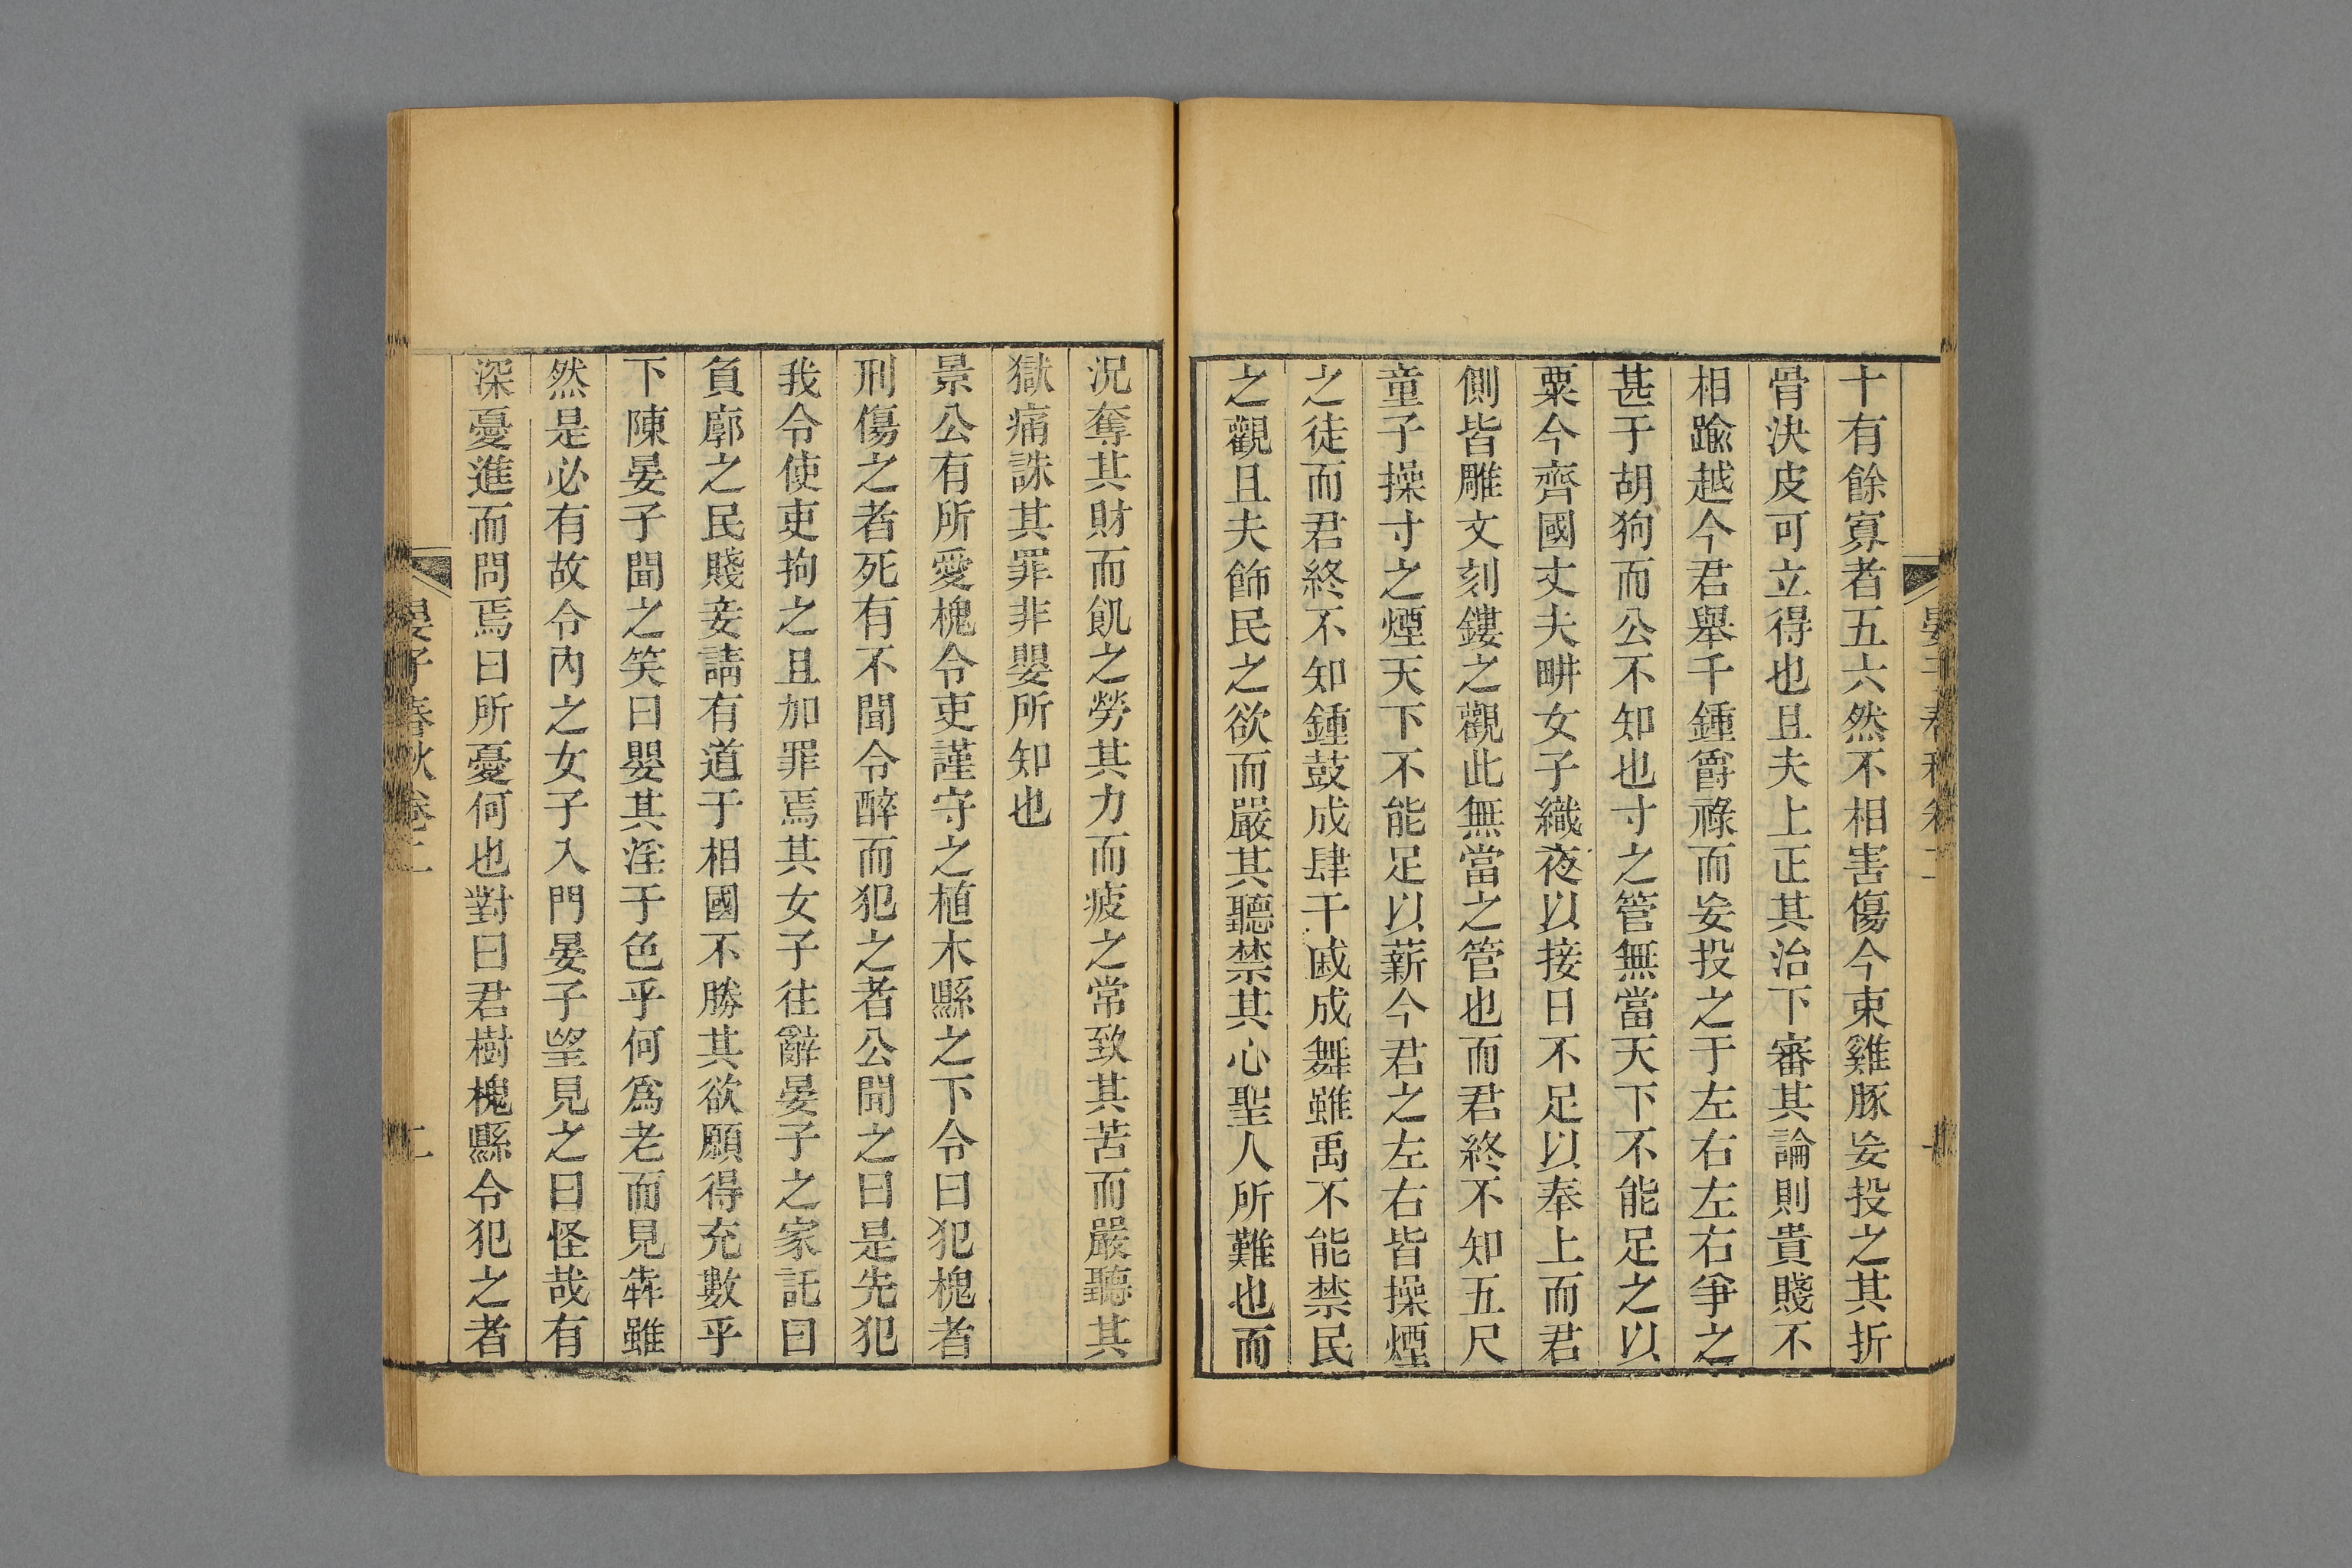 十有餘寡者五六然不相害傷今束雞豚妄投之其折
骨決皮可立得也且夫上正其治下審其論則貴賤不
相踰越今君舉千鍾爵祿而妄投之于左右左右爭之
甚于胡狗而公不知也寸之管無當天下不能足之以
粟今齊國丈夫畊女子織夜以接日不足以奉上而君
側皆雕文刻鏤之觀此無當之管也而君終不知五尺
童子操寸之煙天下不能足以薪今君之左右皆操煙
之徒而君終不知鍾鼓成肆干戚成舞雖禹不能禁民
之觀且夫飾民之欲而嚴其聽禁其心聖人所難也而
況奪其財而飢之勞其力而疲之常致其苦而嚴聽其
獄痛誅其罪非嬰所知也
景公有所愛槐令吏謹守之植木縣之下令曰犯槐者
刑傷之者死有不聞令醉而犯之者公聞之曰是先犯
我令使吏拘之且加罪焉其女子往辭晏子之家託曰
負廓之民賤妾請有道于相國不勝其欲願得充數乎
下陳晏子聞之笑曰嬰其淫于色乎何為老而見犇雖
然是必有故令內之女子入門晏子望見之曰怪哉有
深憂進而問焉曰所憂何也對曰君樹槐縣令犯之者
晏子春秋卷二